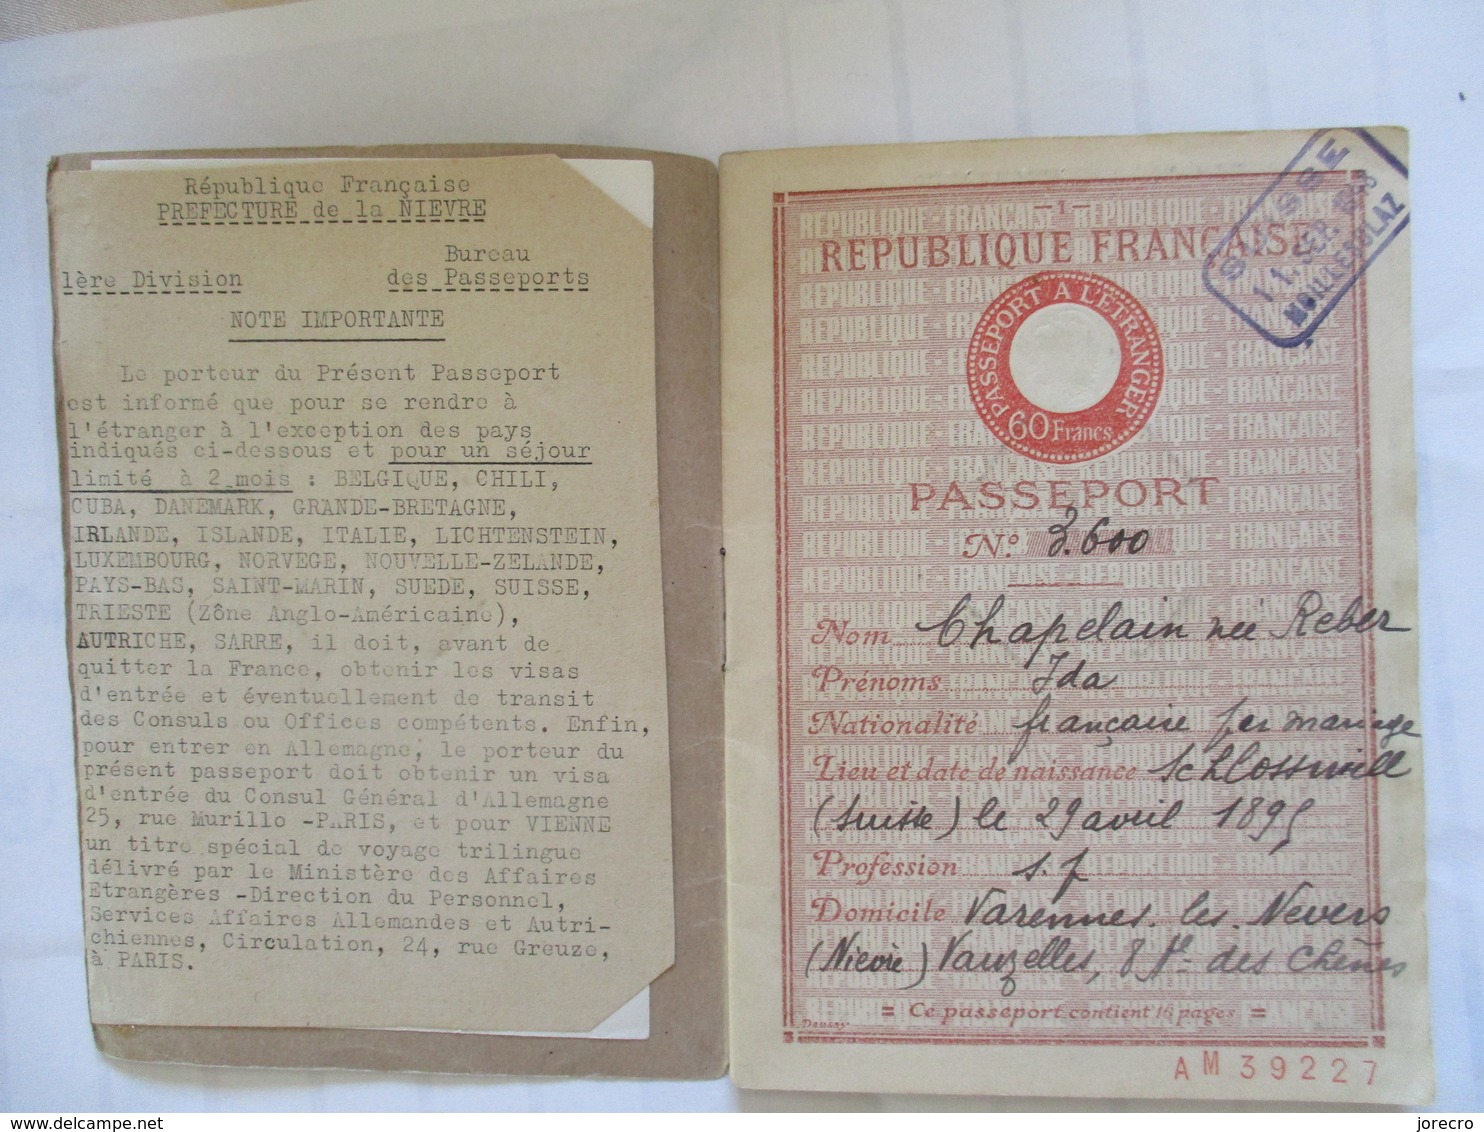 République Française
PREFECTURE de la NIEVRE
Bureau
1ère Division des Passeports
NOTE IMPORTANTE
Le porteur du Présent Passeport
est informé que pour se rendre à
l'étranger à l'exception des pays
indiqués ci-dessous et pour un séjour
limité à 2 mois : BELGIQUE, CHILI,
CUBA, DANEMARK, GRANDE-BRETAGNE,
IRLANDE, ISLANDE, ITALIE, LICHTENSTEIN,
LUXEMBOURG, NORVEGE, NOUVELLE-ZELANDE,
PAYS-BAS, SAINT-MARIN, SUEDE, SUISSE,
TRIESTE (Zône Anglo-Américaine),
AUTRICHE, SARRE, il doit, avant de
quitter la France, obtenir les visas
d'entrée et éventuellement de transit
des Consuls ou Offices compétents. Enfin,
pour entrer en Allemagne, le porteur du
présent passeport doit obtenir un visa
d'entrée du Consul Général d'Allemagne
25, rue Murillo -PARIS, et pour VIENNE
un titre spécial de voyage trilingue
délivré par le Ministère des Affaires
Etrangères -Direction du Personnel,
Services Affaires Allemandes et Autri-
chiennes, Circulation, 24, rue Greuze,
à PARIS.
-1-
REPUBLIQUE FRANÇAISE
SUISSE
11. SEP.
MOILLESULAZ
PASSEPORT A L'ETRANGER
60 Francs
PASSEPORT
N° 3.600
Nom Chapelain née Reber
Prénoms Ida
Nationalité française par mariage
Lieu et date de naissance Schlosswill
(Suisse) le 29 avril 1895
Profession s.p
Domicile Varennes. les. Nevers
(Nièvre) Vauzelles, 8 des Chênes
= Ce passeport contient 16 pages =
AM39227
delcampe.net
jorecro